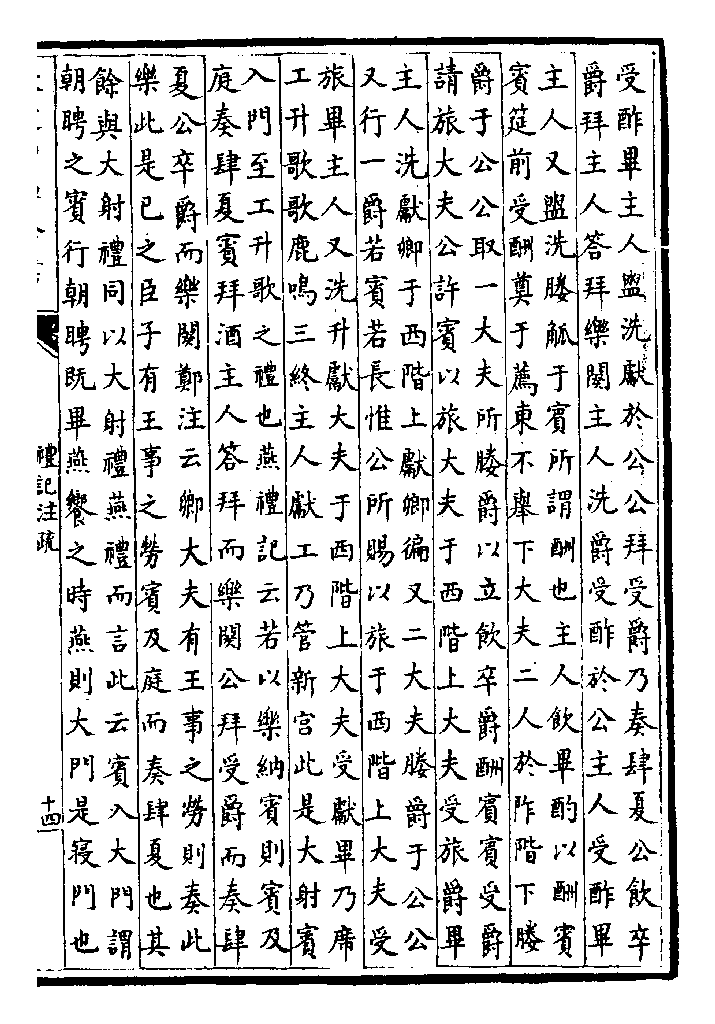 受酢畢主人盥洗獻於公公拜受爵乃奏肆夏公飲卒
爵拜主人答拜樂闋主人洗爵受酢於公主人受酢畢
主人又盥洗媵觚于賓所謂酬也主人飲畢酌以酬賓
賓筵前受酬奠于薦東不舉下大夫二人於阼階下媵
爵于公公取一大夫所媵爵以立飲卒爵酬賓賓受爵
請旅大夫公許賓以旅大夫于西階上大夫受旅爵畢
主人洗獻卿于西階上獻卿徧又二大夫媵爵于公公
又行一爵若賓若長惟公所賜以旅于西階上大夫受
旅畢主人又洗升獻大夫于西階上大夫受獻畢乃席
工升歌歌鹿鳴三終主人獻工乃管新宮此是大射賓
入門至工升歌之禮也燕禮記云若以樂納賓則賓及
庭奏肆夏賓拜酒主人答拜而樂闋公拜受爵而奏肆
夏公卒爵而樂闋鄭注云卿大夫有王事之勞則奏此
樂此是已之臣子有王事之勞賓及庭而奏肆夏也其
餘與大射禮同以大射禮燕禮而言此云賓入大門謂
朝聘之賓行朝聘既畢燕饗之時燕則大門是寢門也
禮記注疏
十四